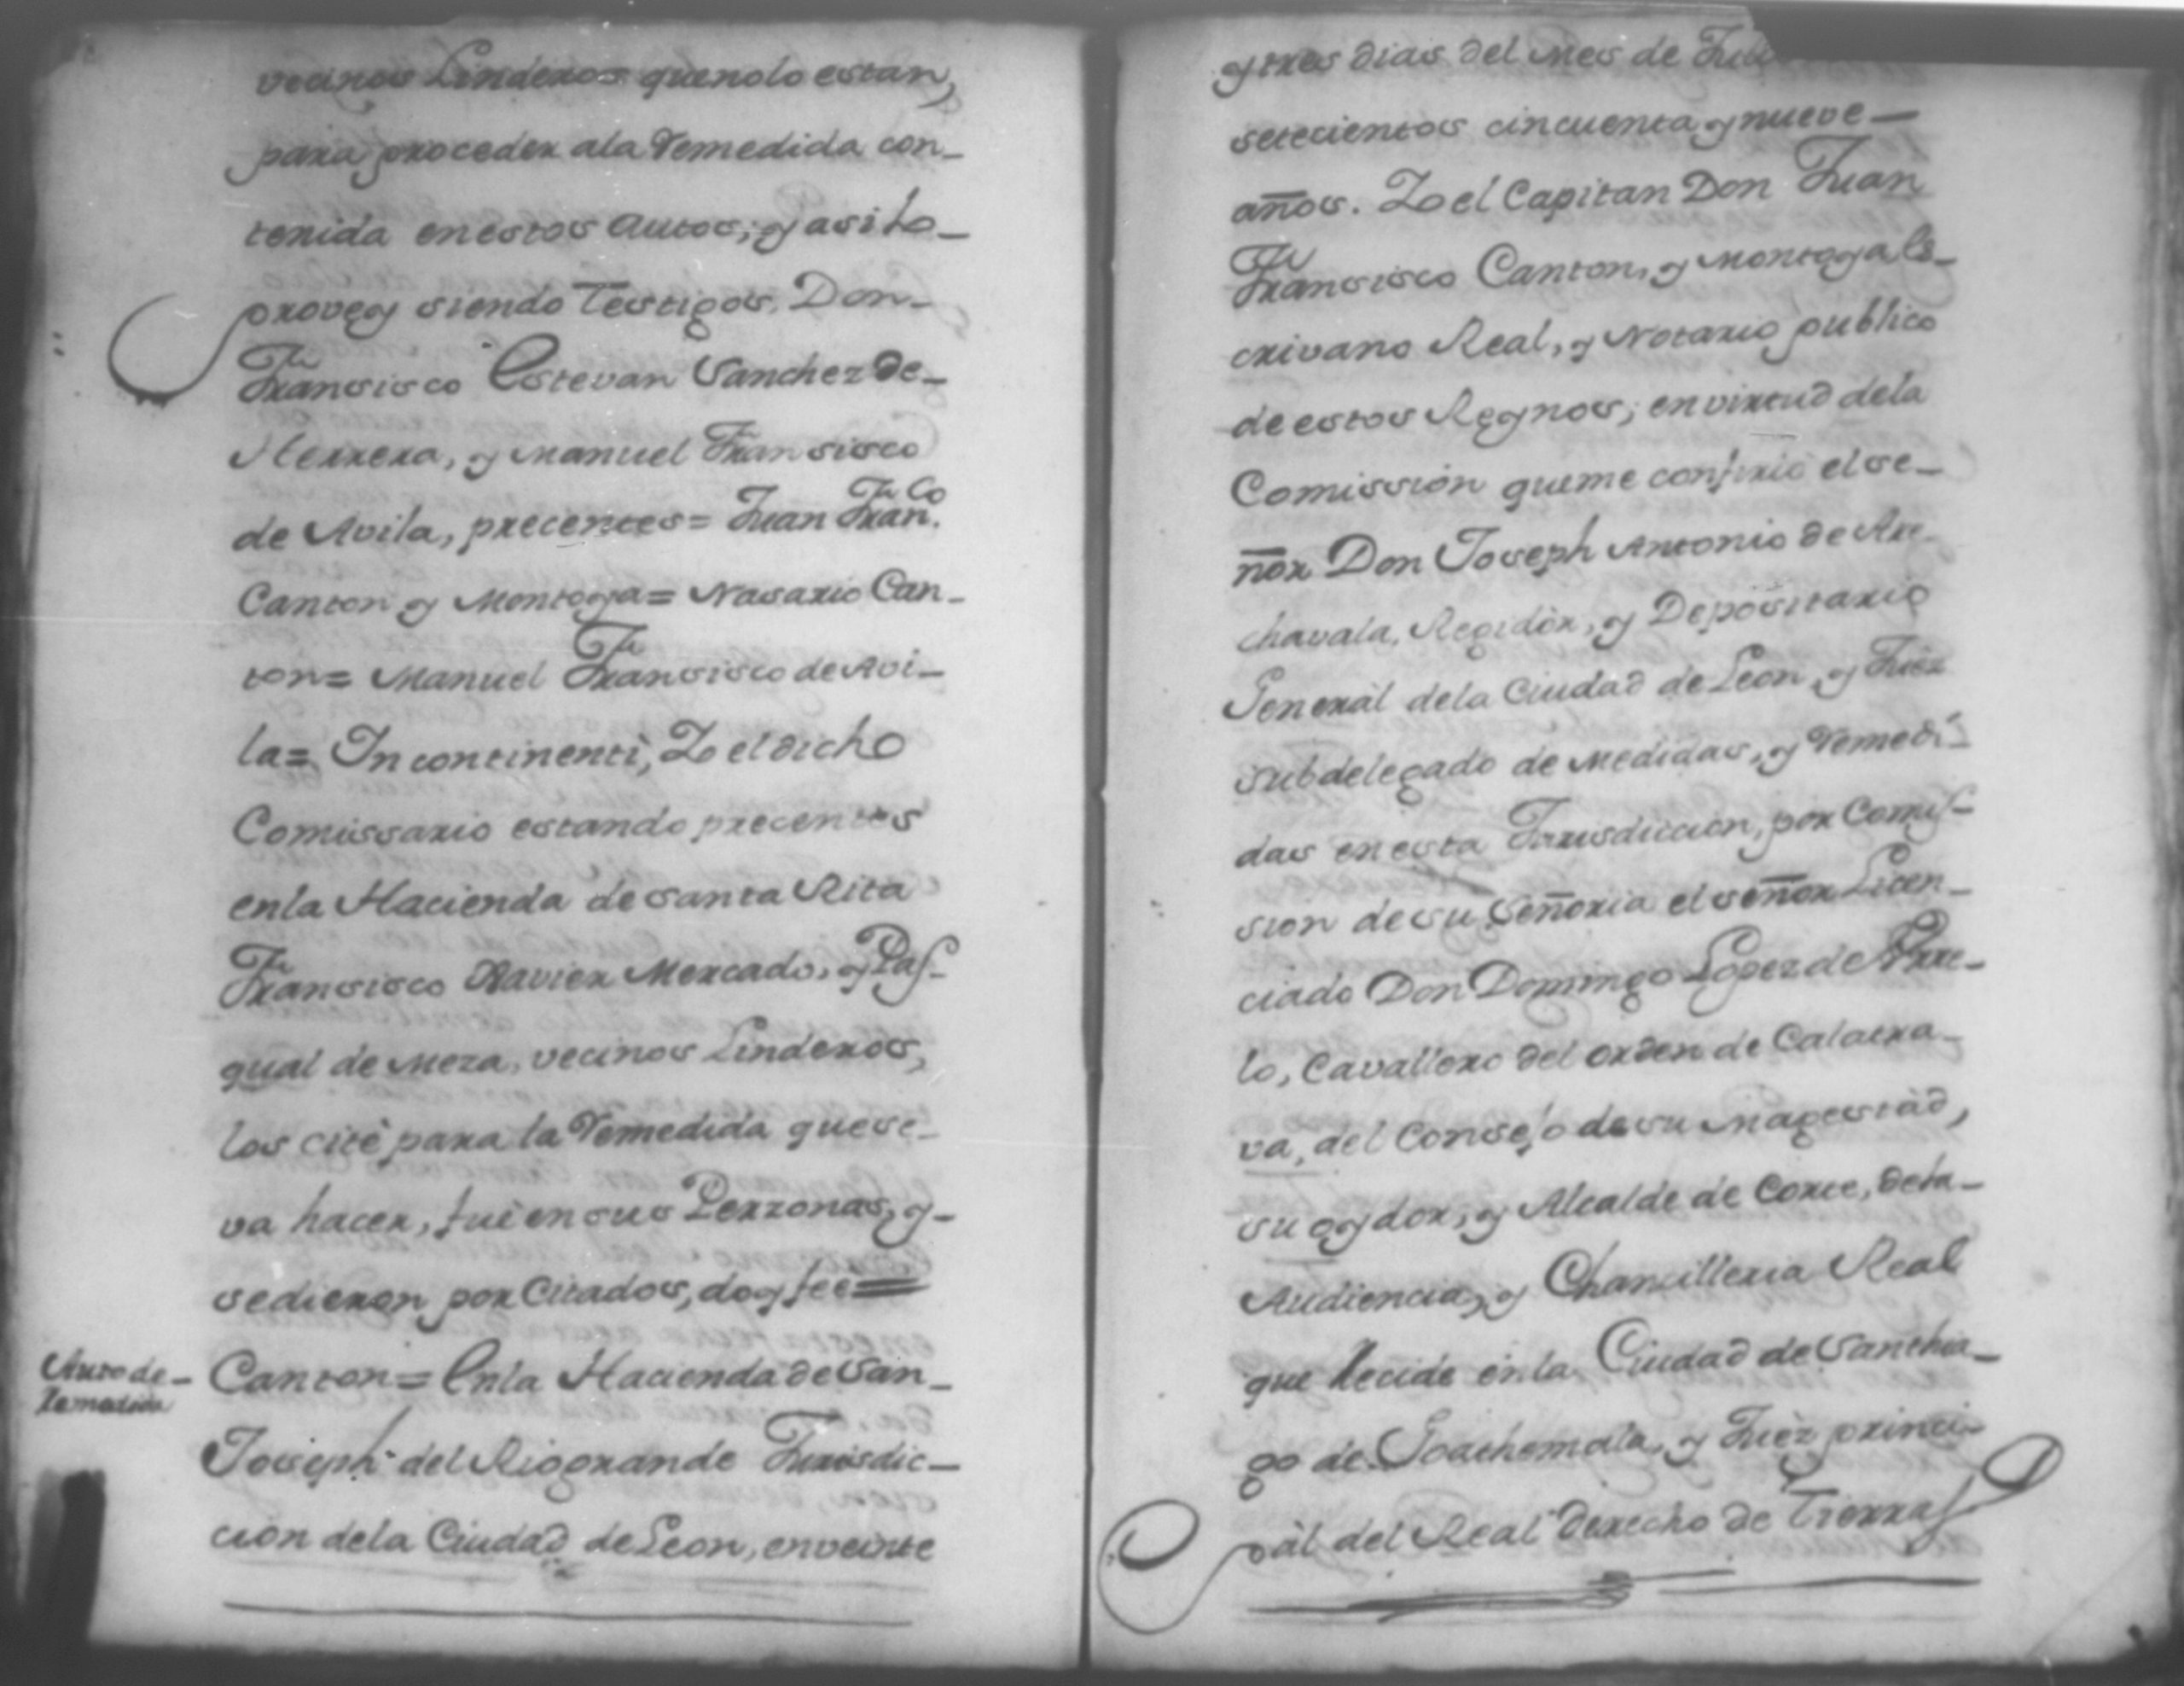 vecinos Linderos quenolo estan,
para proceder ala Remedida con-
tenida enestos autos; y asi lo-
provey siendo Testigos. Don-
Fransisco Estevan Sanchez de-
Herrera, y Manuel Fransisco
de Avila, precentes= Juan Fran.co
Canton y Montoya= Nasario Can-
ton= Manuel Fransisco de Avi-
la= In continenti, Yo el dicho
Comissario estando precentes
enla Hacienda de santa Rita
Fransisco Xavier Mercado, y Pas-
qual de Meza, vecinos Linderos,
los citè para la Remedida quese-
va hacer, fuè en sus Perzonas, y-
sedieron por Citados, doy feè=
Auto de-
Remedida
Canton= Enla Hacienda de San-
Joseph del Riogrande Jurisdic-
cion dela Ciudad de Leon, enveinte
y tres dias del mes de
setecientos cincuenta y nueve-
años. Yo el Capitan Don Juan
Fransisco Canton, y Montoya Es-
crivano Real, y Notario publico
de estos Reynos; en virtud dela
Comissiòn queme confiriò el se-
ñor Don Joseph Antonio de Are-
chavala, Regidòr, y Depositario
Generàl dela Ciudad de Leon, y Juèz
subdelegado de Medidas, y Remedi-
das en esta Jurisdiccion, por Comis-
sion de su señoria el señor Licen-
ciado Don Domingo Lopez de Urre-
lo, Cavallero del orden de Calatra-
va, del Consejo de su Magestàd,
su oydor, y Alcalde de Corte, dela-
Audiencia, y Chancilleria Real
que Recide en la Ciudad de Santhia-
go de Goathemala, y Juèz princi-
pàl del Real derecho de Tierras